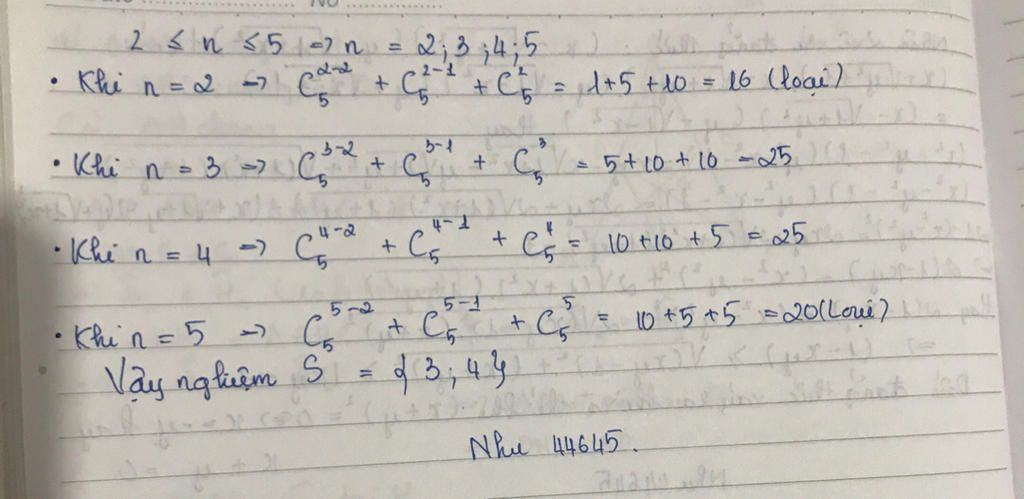 2 ≤ n ≤ 5 => n = 2; 3; 4; 5
• Khi n = 2 => C₅²⁻² + C₅²⁻¹ + C₅² = 1+5+10 = 16 (loại)
• Khi n = 3 => C₅³⁻² + C₅³⁻¹ + C₅³ = 5+10+10 = 25
• Khi n = 4 => C₅⁴⁻² + C₅⁴⁻¹ + C₅⁴ = 10+10+5 = 25
• Khi n = 5 => C₅⁵⁻² + C₅⁵⁻¹ + C₅⁵ = 10+5+5 = 20 (Loại)
Vậy nghiệm S = {3; 4}
Như 44645.